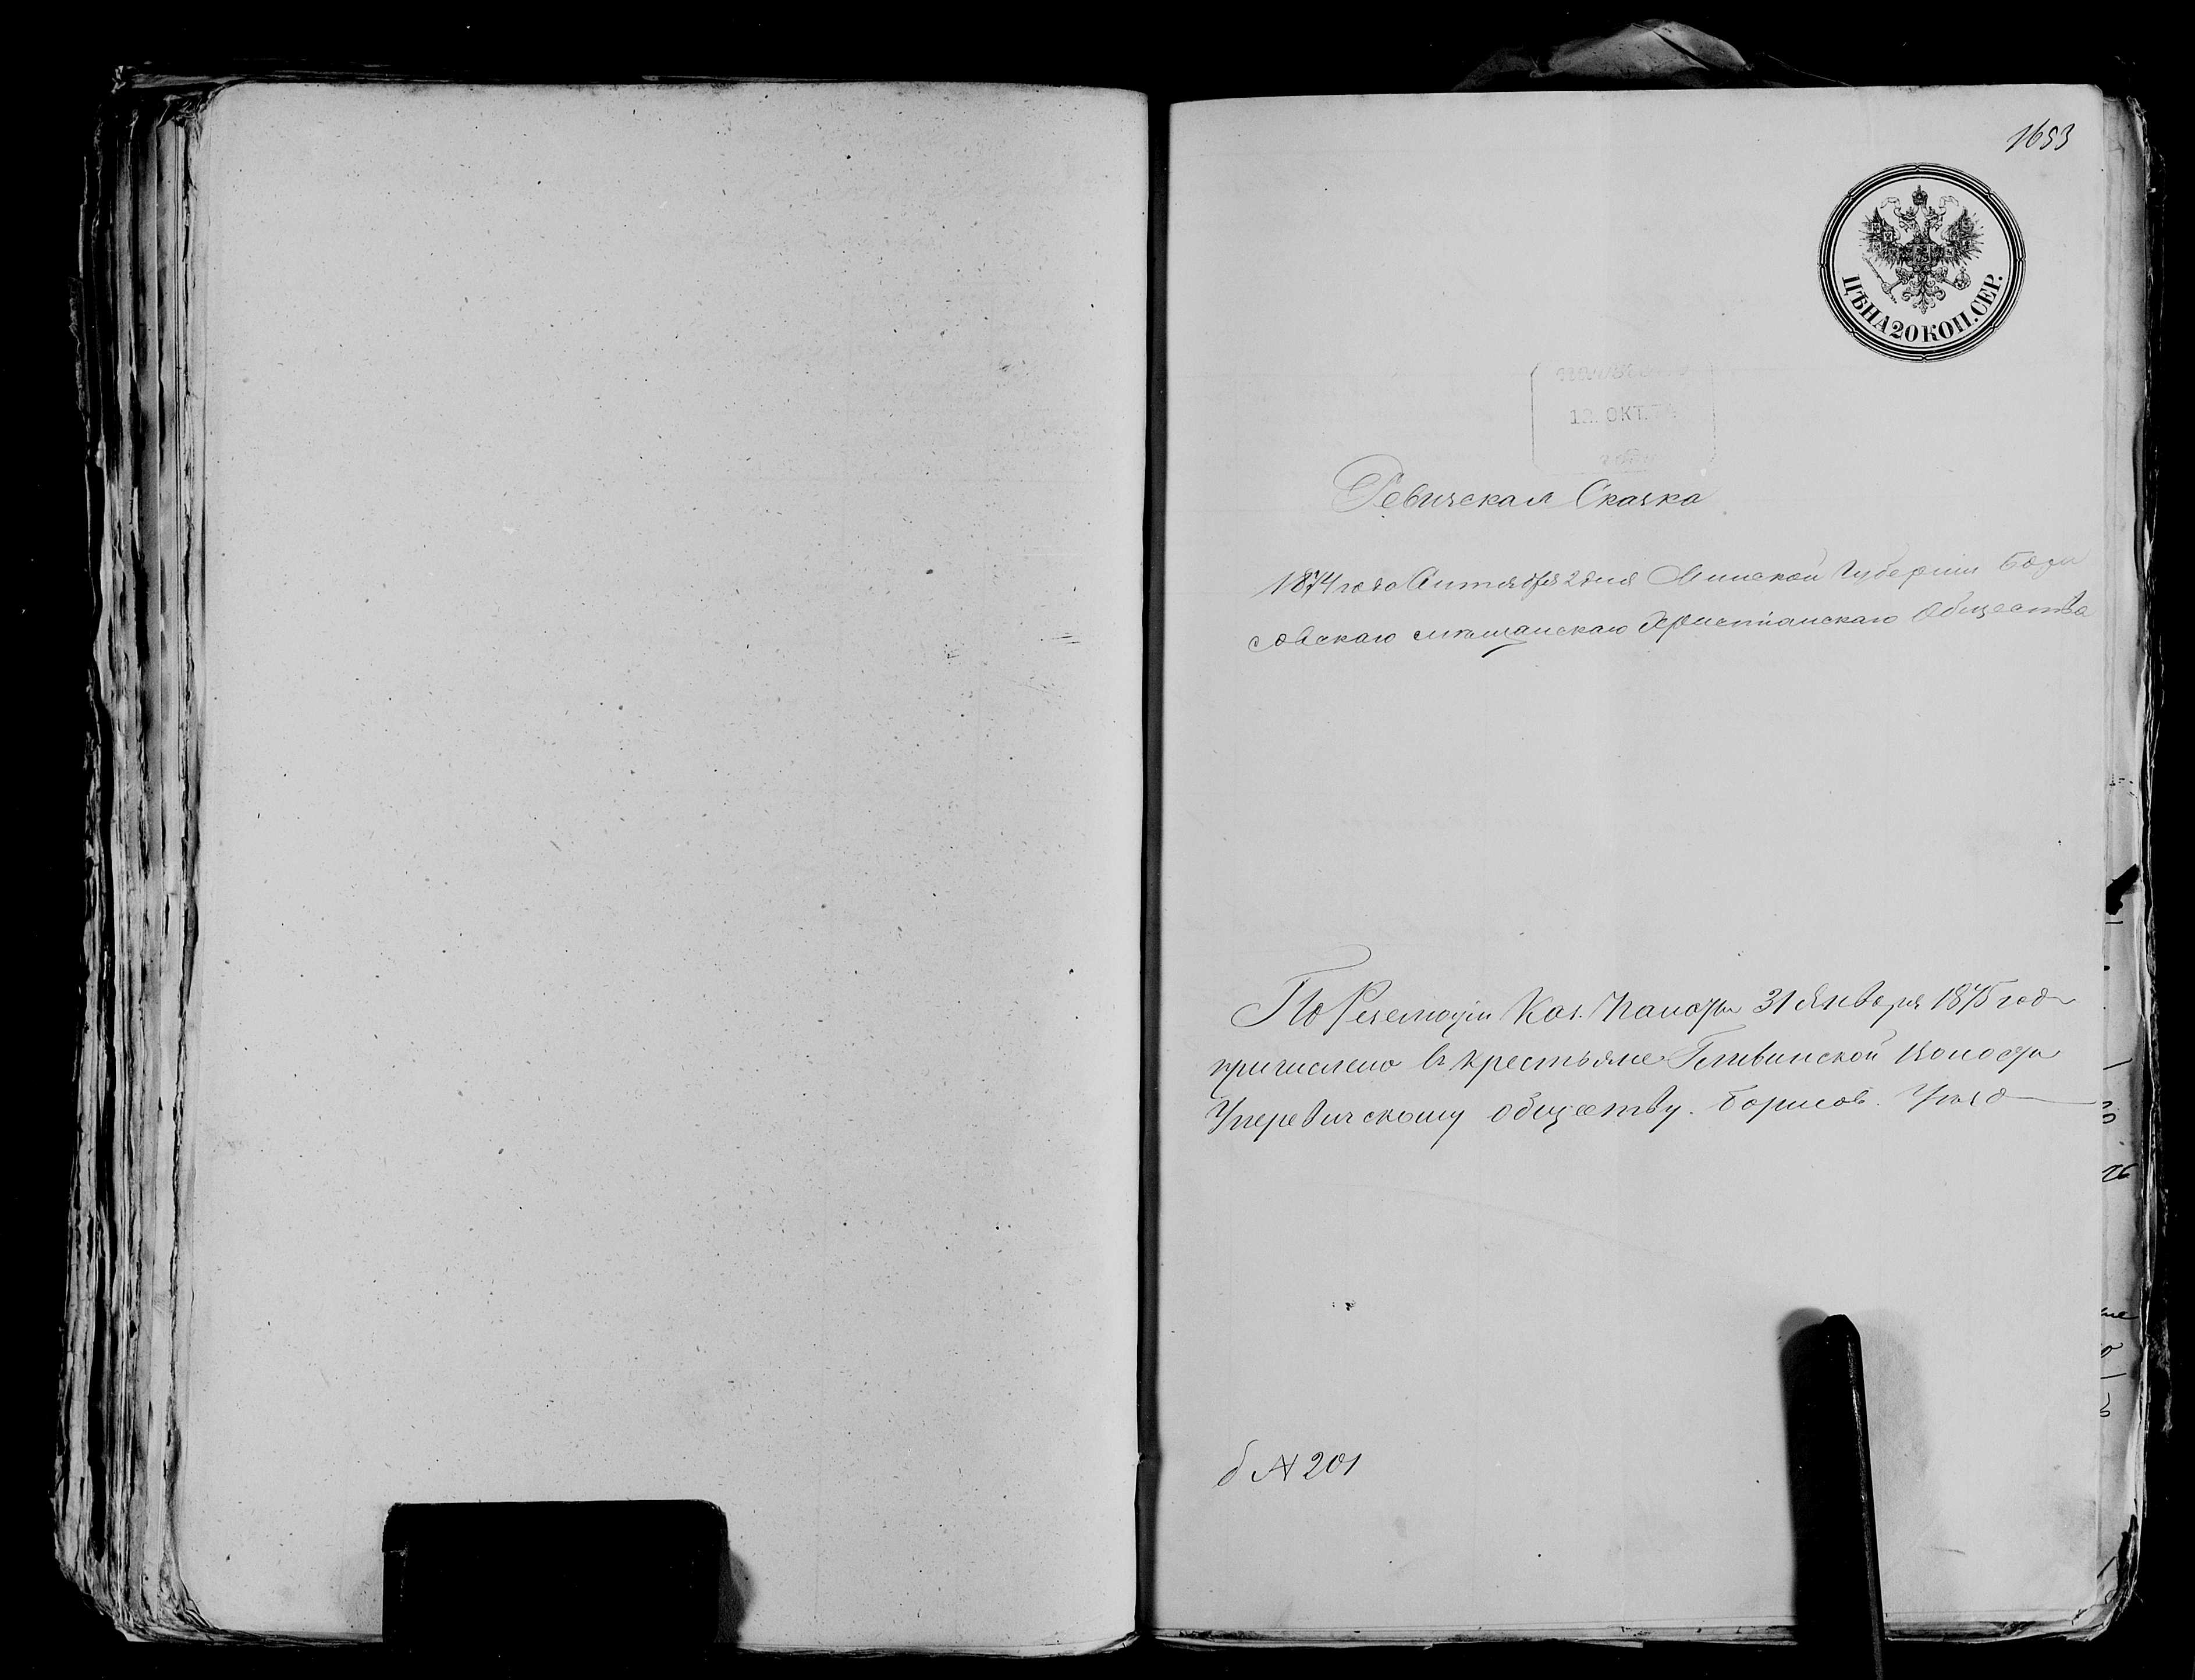 1653
ЦѢНА 20 КОП. СЕР.
12. ОКТ. 74
Ревизская Сказка
1874 года Октября 2 дня Минской Губернии Бори
совскаго мѣщанскаго Христіанскаго Общества
По Резолюціи Каз. Палаты 31 Января 1875 года
причислено въ крестьяне Гливинской Волости
Уперевичскому обществу. Борисов. Уѣзд
б № 201